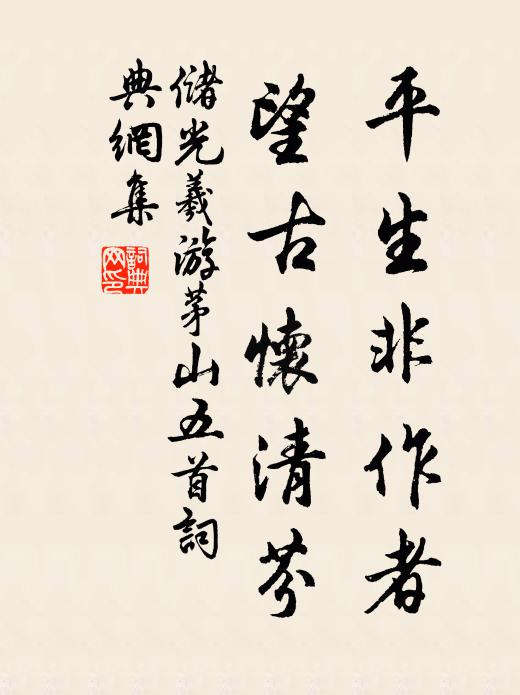 平生非作者
望古懷清芬
儲光羲游茅山五首詞
典網集
詞典網印